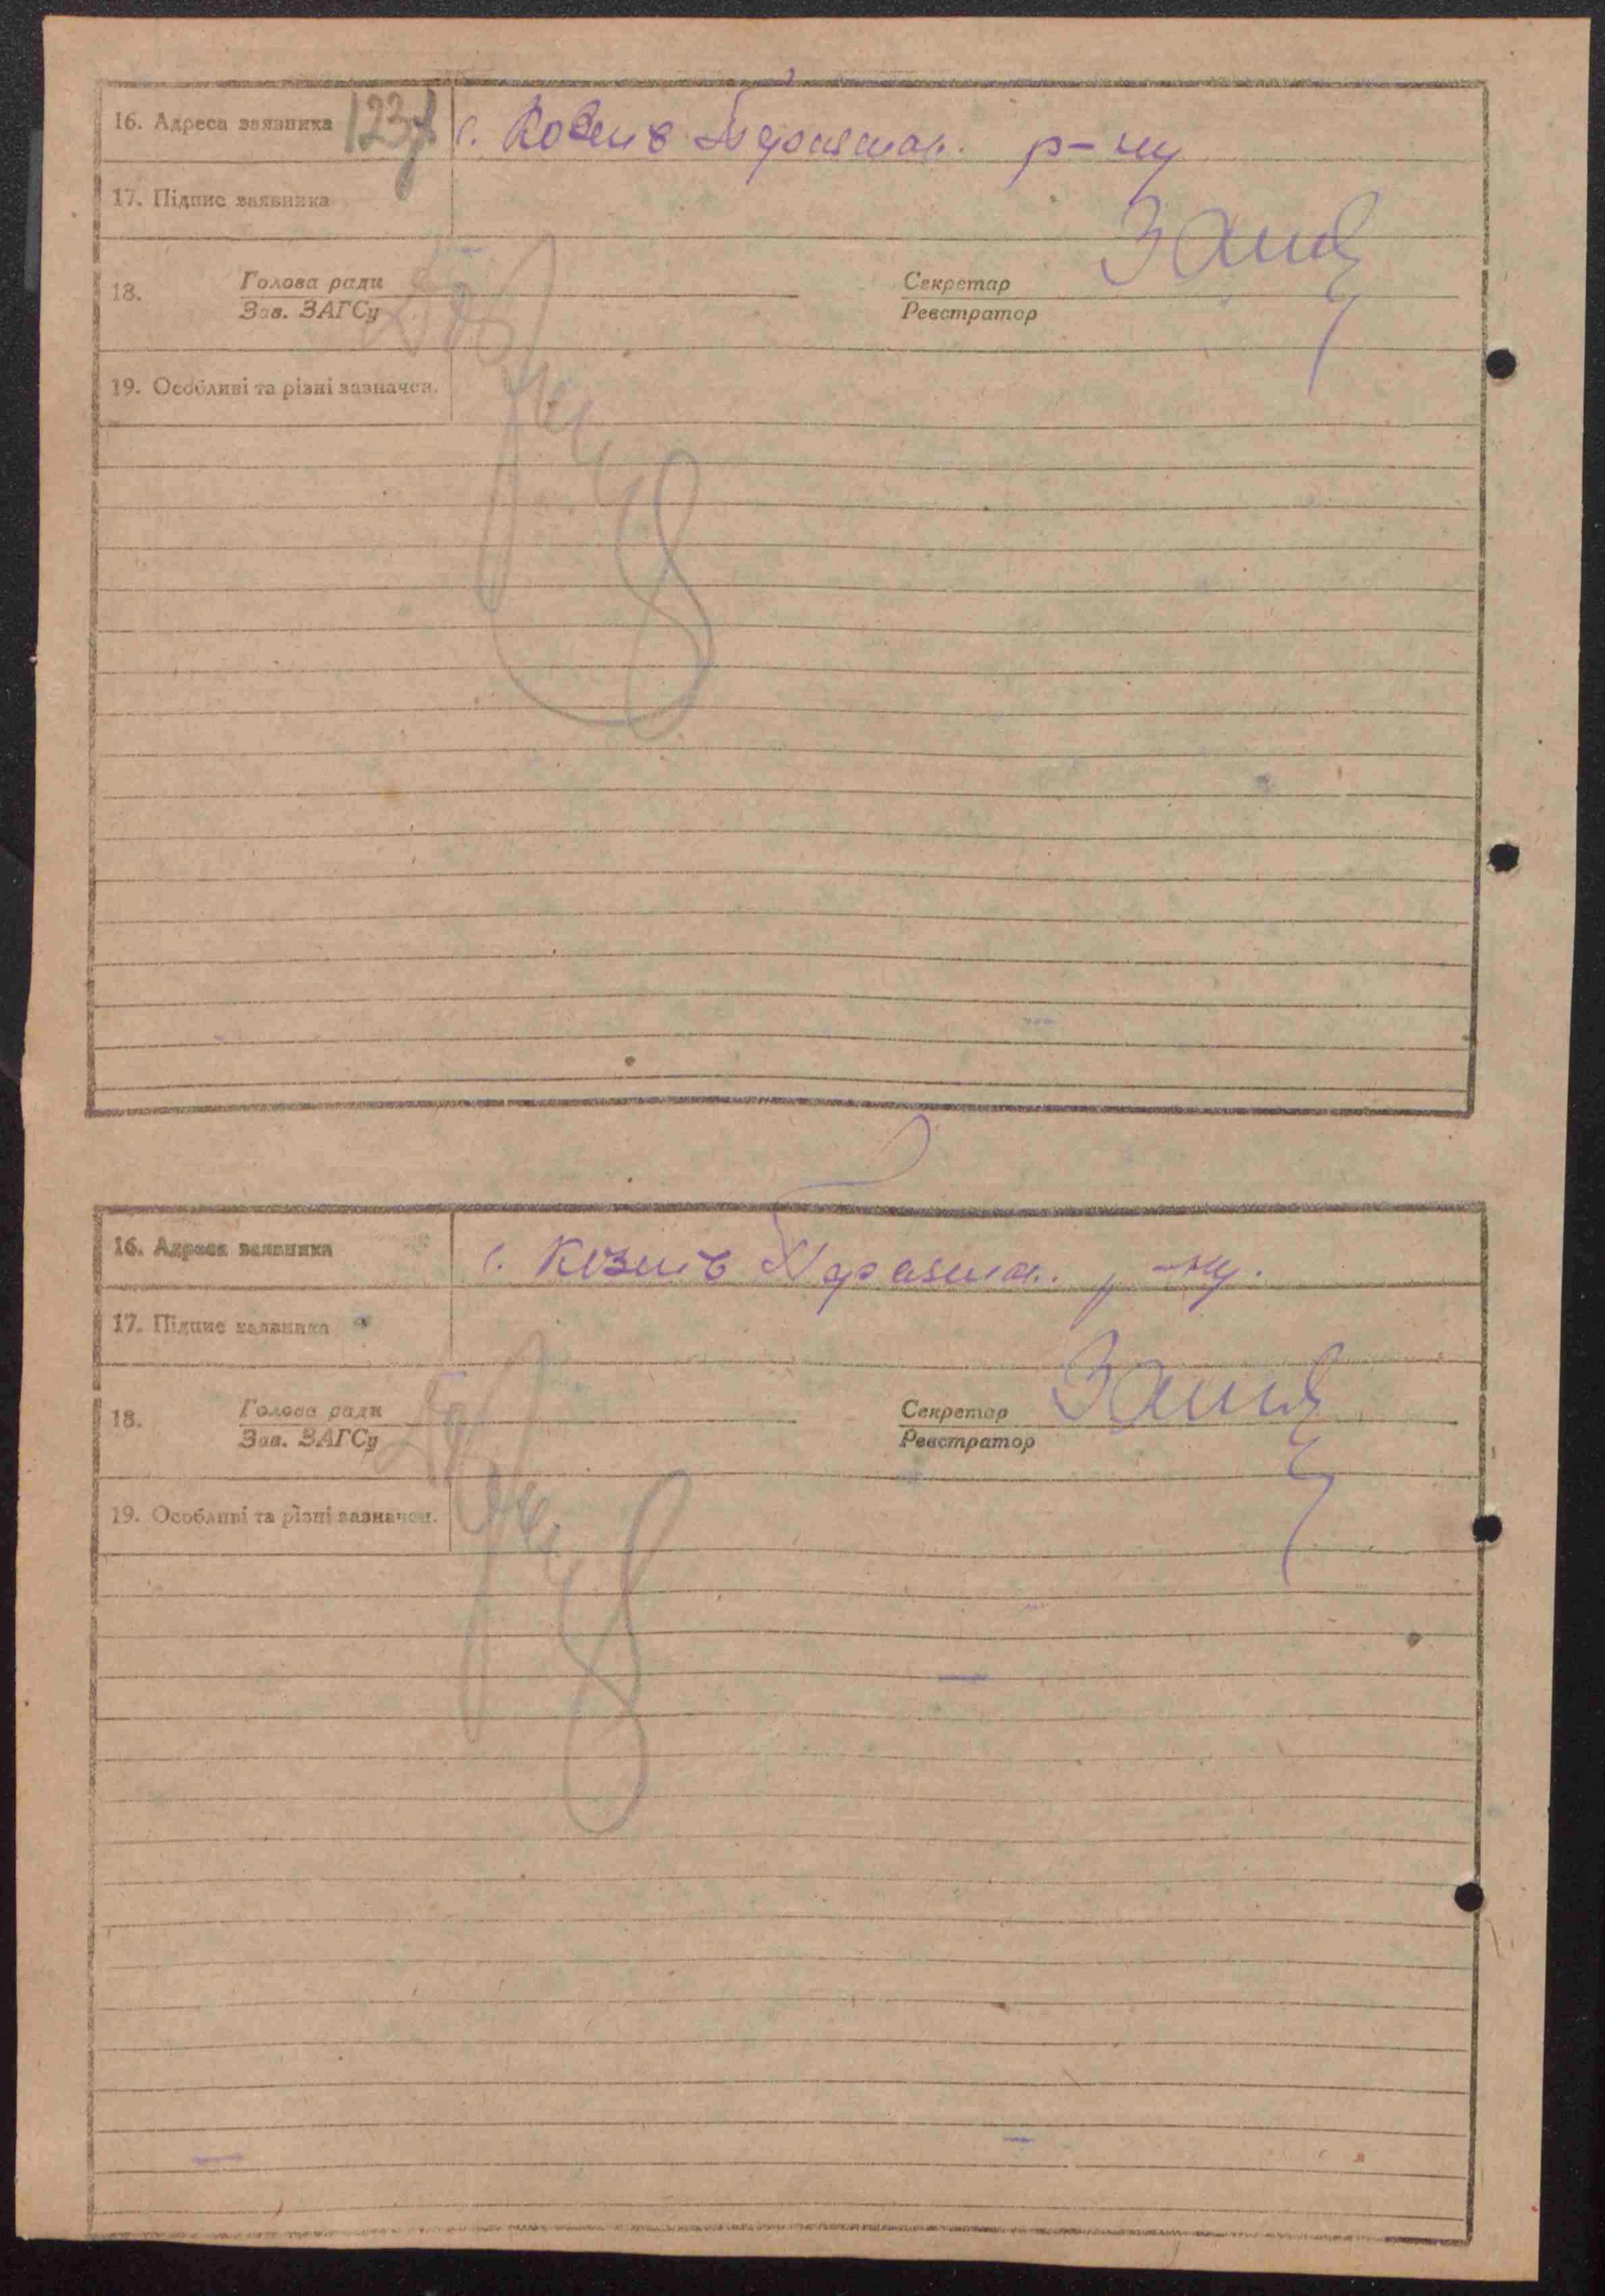 16. Адреса заявника 123 с. Козлів р-ну
17. Підпис заявника
18. Голова ради Секретар
Зав. ЗАГСу Реєстратор
19. Особливі та різні зазначен.
16. Адреса заявника с. Козлів р-ну.
17. Підпис заявника
18. Голова ради Секретар
Зав. ЗАГСу Реєстратор
19. Особливі та різні зазначен.